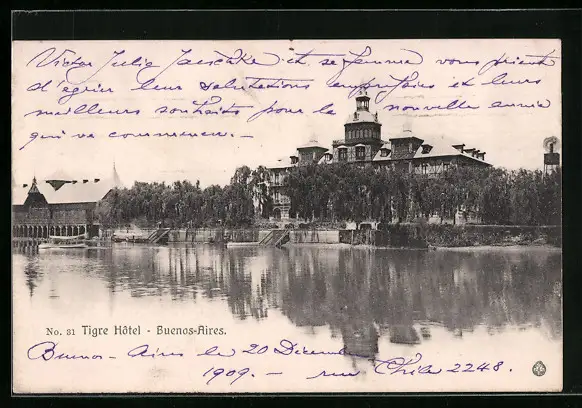 Victor Julio Jaeschke et sa femme vous prient
d'agréer leurs salutations empressées et leurs
meilleurs souhaits pour la nouvelle année
qui va commencer. —
No. 31 Tigre Hôtel - Buenos-Aires.
Buenos - Aires le 20 Décembre
1909. — rue Chile 2248.